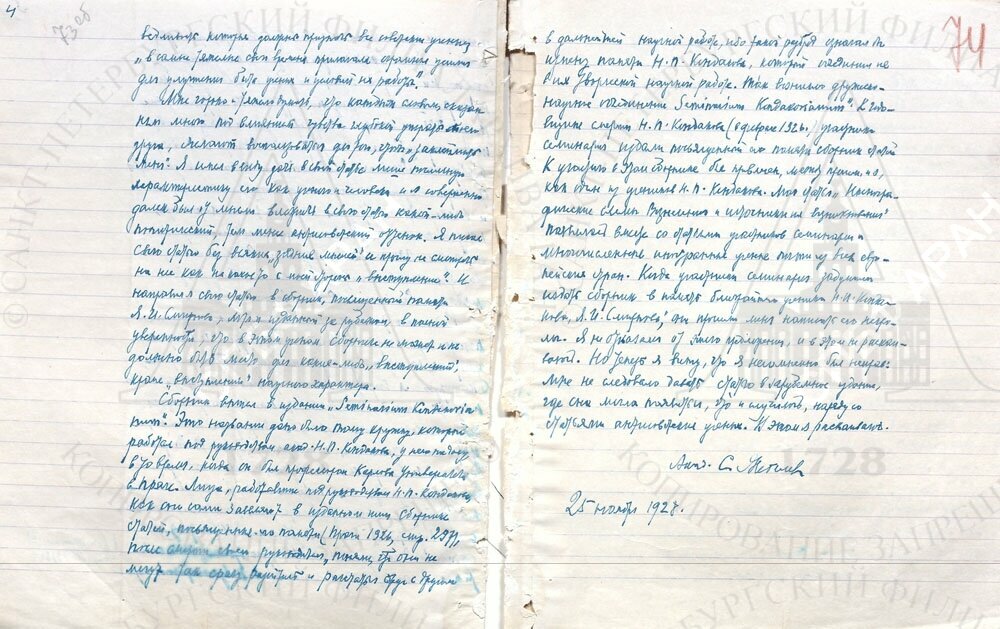 4
73об
ведливость которые должны признать все советские ученые,
"в самые тяжелые свои времена прилагали огромные усилия
для улучшения быта ученых и условий их работы".
Мне горько и тяжело думать, что каждым словом, сказан-
ным мною под влиянием чувства глубокой утраты моего
друга, желают воспользоваться для того, чтобы
меня. Я имел в виду дать в своей статье лишь посильную
характеристику его как ученого и человека и совершенно
далек был от мысли вложить в свою статью какой-либо
политический, тем менее антисоветский оттенок. Я писал
свою статью без всяких задних мыслей и прошу не смотреть
на нее как на какое-то с моей стороны "выступление". И
направил я свою статью в сборник, посвященный памяти
Я.И. Смирнова, хотя и изданный за рубежом, в полной
уверенности, что в этом ученом сборнике не может и не
должно быть места для каких-либо "выступлений",
кроме "выступлений" научного характера.
Сборник вышел в издании "Seminarium Kondakovia-
num". Это название дано было тому кружку, который
работал под руководством акад. Н.П. Кондакова, у него на дому
в то время, когда он был профессором Карлова Университета
в Праге. Лица, работавшие под руководством Н.П. Кондакова,
как они сами заявляют в изданном ими Сборнике
статей, посвященных его памяти (Прага 1926, стр. 297),
после смерти своего руководителя, поняли, что они не
могут так сразу разойтись и расстаться друг с другом
74
в дальнейшей научной работе, ибо такой разрыв означал бы
измену памяти Н.П. Кондакова, который объединил не
в их творческой научной работе. Так возникло дружеско-
научное объединение "Seminarium Kondakovianum". К годо-
вщине смерти Н.П. Кондакова (в феврале 1926), участники
семинария издали посвященный его памяти сборник статей.
К участию в этом сборнике был привлечен, между прочим, и я,
как один из учеников Н.П. Кондакова. Моя статья "Иконогра-
фические схемы Вознесения и источники их возникновения"
появилась вместе со статьями участников семинария и
многочисленных иностранных ученых почти из всех евро-
пейских стран. Когда участники семинария задумали
издать сборник в память ближайшего ученика Н.П. Конда-
кова, Я.И. Смирнова, они просили меня написать его некро-
лог. Я не отказался от такого предложения, и в этом не раскаи-
ваюсь. Но теперь я вижу, что я несомненно был неправ.
Мне не следовало давать статью в зарубежное издание,
где она могла появиться, что и случилось, наряду со
статьями антисоветских ученых. И в этом я раскаиваюсь.
Акад. С. Жебелев
25 ноября 1928.